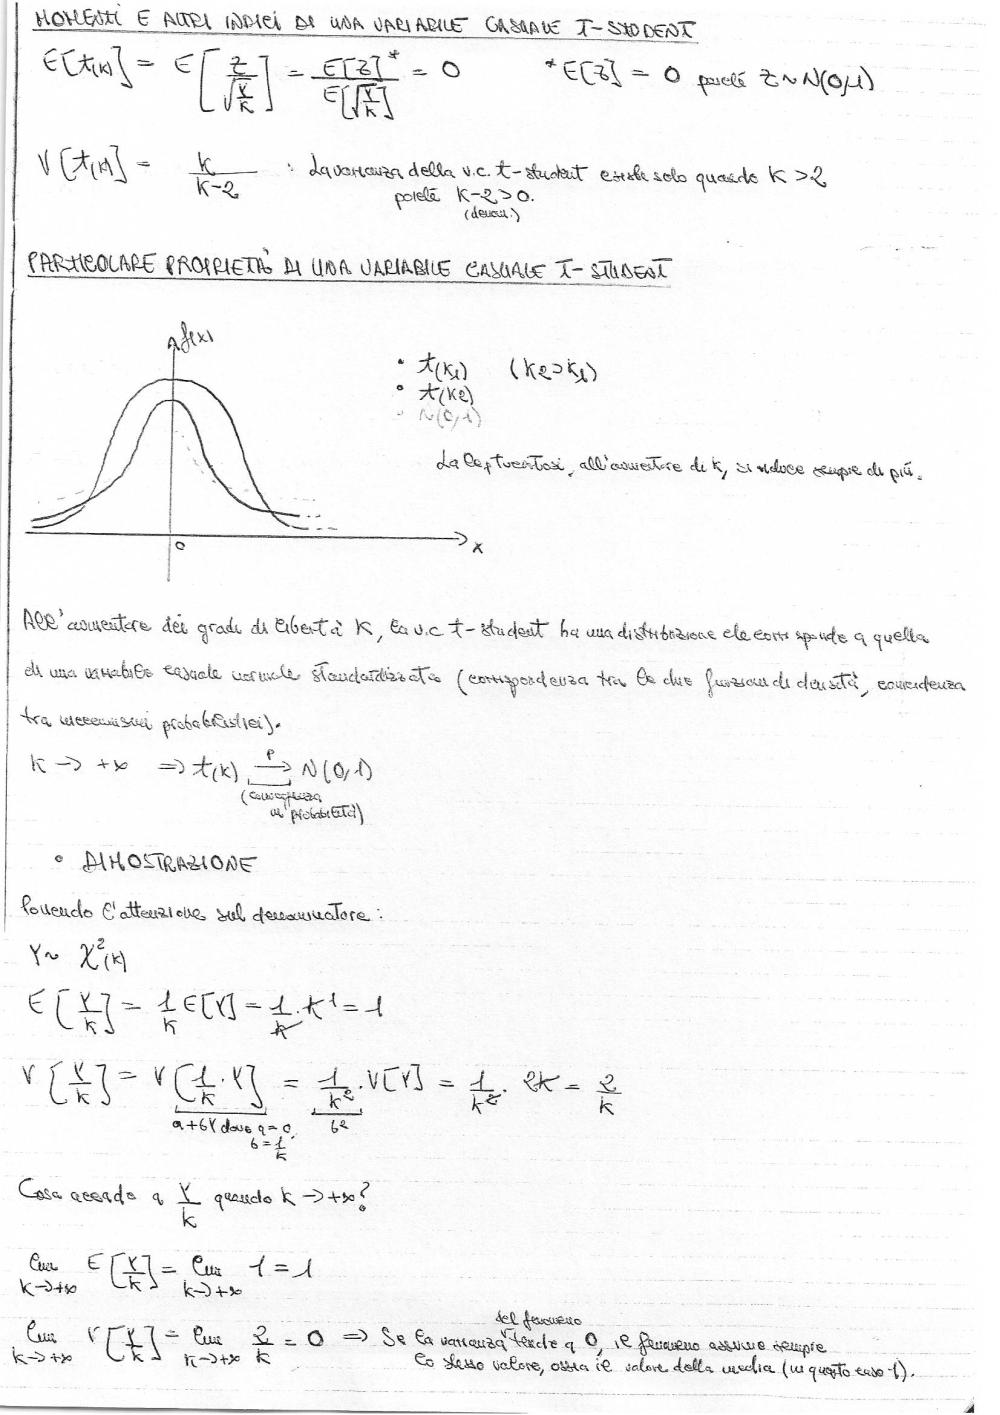 MOMENTI E ALTRI INDICI DI UNA VARIABILE CASUALE T-STUDENT
E[t(k)] = E[Z/√(Y/k)] = E[Z]*/E[√(Y/k)] = 0   *E[Z] = 0 poiché Z~N(0,1)
V[t(k)] = k/(k-2) : La varianza della v.c. t-student esiste solo quando K>2
poiché K-2>0.
(denom.)
PARTICOLARE PROPRIETÀ DI UNA VARIABILE CASUALE T-STUDENT
f(x)
• t(k1) (k2>k1)
• t(k2)
• N(0,1)
La leptocurtosi, all'aumentare di k, si riduce sempre di più.
0
x
All'aumentare dei gradi di libertà K, la v.c t-student ha una distribuzione che corrisponde a quella
di una variabile casuale normale standardizzata (corrispondenza tra le due funzioni di densità, coincidenza
tra meccanismi probabilistici).
K → +∞ ⇒ t(k) →P N(0,1)
(convergenza
in probabilità)
• DIMOSTRAZIONE
Ponendo l'attenzione sul denominatore:
Y~ χ²(k)
E[Y/k] = 1/k E[Y] = 1/k · k 1 = 1
V[Y/k] = V[1/k · Y] = 1/k² · V[Y] = 1/k² · 2k = 2/k
a+bY dove a=0, b²
b=1/k
Cosa accade a Y/k quando k → +∞?
lim k→+∞ E[Y/k] = lim k→+∞ 1 = 1
del fenomeno
lim k→+∞ V[Y/k] = lim k→+∞ 2/k = 0 ⇒ Se la varianza tende a 0, il fenomeno assume sempre
lo stesso valore, ossia il valore della media (in questo caso 1).